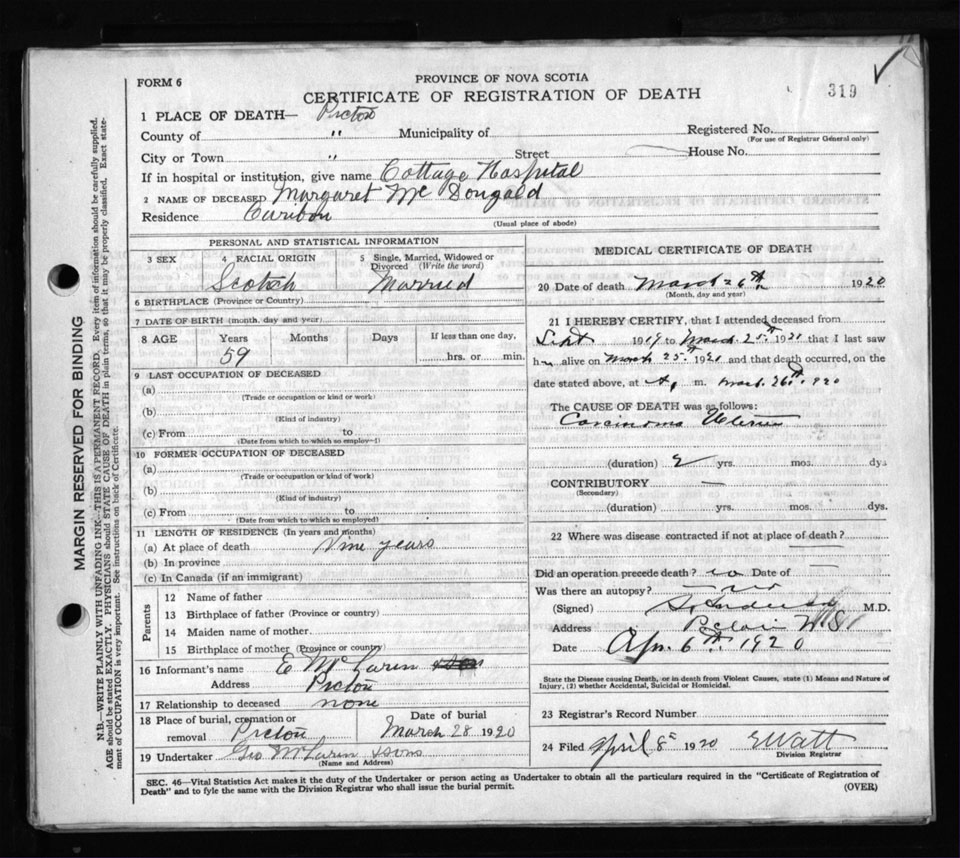 FORM 6
PROVINCE OF NOVA SCOTIA
CERTIFICATE OF REGISTRATION OF DEATH
319
1 PLACE OF DEATH— Pictou
County of " Municipality of Registered No.
(For use of Registrar General only)
City or Town " Street House No.
If in hospital or institution, give name Cottage Hospital
2 NAME OF DECEASED Margaret Mc Dougald
Residence Caribou
(Usual place of abode)
PERSONAL AND STATISTICAL INFORMATION
3 SEX 4 RACIAL ORIGIN 5 Single, Married, Widowed or Divorced (Write the word)
Scotch Married
6 BIRTHPLACE (Province or Country)
7 DATE OF BIRTH (month, day and year)
8 AGE Years Months Days If less than one day,
59 hrs. or min.
9 LAST OCCUPATION OF DECEASED
(a)
(Trade or occupation or kind or work)
(b)
(Kind of industry)
(c) From to
(Date from which to which so employ—)
10 FORMER OCCUPATION OF DECEASED
(a)
(Trade or occupation or kind of work)
(b)
(Kind of industry)
(c) From to
(Date from which to which so employed)
11 LENGTH OF RESIDENCE (In years and months)
(a) At place of death Nine years
(b) In province
(c) In Canada (if an immigrant)
Parents
12 Name of father
13 Birthplace of father (Province or country)
14 Maiden name of mother
15 Birthplace of mother (Province or country)
16 Informant's name E McLaren
Address Pictou
17 Relationship to deceased none
18 Place of burial, cremation or removal Pictou Date of burial March 28 1920
19 Undertaker Geo McLaren & sons
(Name and Address)
MEDICAL CERTIFICATE OF DEATH
20 Date of death March 26th 1920
(Month, day and year)
21 I HEREBY CERTIFY, that I attended deceased from
Sept 1919 to March 25th 1920 that I last saw
her alive on March 25th 1920 and that death occurred, on the
date stated above, at A. m. March 26th 1920
The CAUSE OF DEATH was as follows:
Carcinoma Uterus
(duration) 2 yrs. mos. dys
CONTRIBUTORY —
(Secondary)
(duration) yrs. mos. dys.
22 Where was disease contracted if not at place of death?
Did an operation precede death? no Date of —
Was there an autopsy? no
(Signed) M.D.
Address Pictou N.S.
Date Apr. 6th 1920
State the Disease causing Death, or in death from Violent Causes, state (1) Means and Nature of
Injury, (2) whether Accidental, Suicidal or Homicidal.
23 Registrar's Record Number
24 Filed April 8th 1920 E Watt
Division Registrar
SEC. 46—Vital Statistics Act makes it the duty of the Undertaker or person acting as Undertaker to obtain all the particulars required in the "Certificate of Registration of
Death" and to fyle the same with the Division Registrar who shall issue the burial permit.
(OVER)
MARGIN RESERVED FOR BINDING
N.B.—WRITE PLAINLY WITH UNFADING INK—THIS IS A PERMANENT RECORD. Every item of information should be carefully supplied.
AGE should be stated EXACTLY. PHYSICIANS should STATE CAUSE OF DEATH in plain terms, so that it may be properly classified. Exact state-
ment of OCCUPATION is very important. See instructions on back of Certificate.